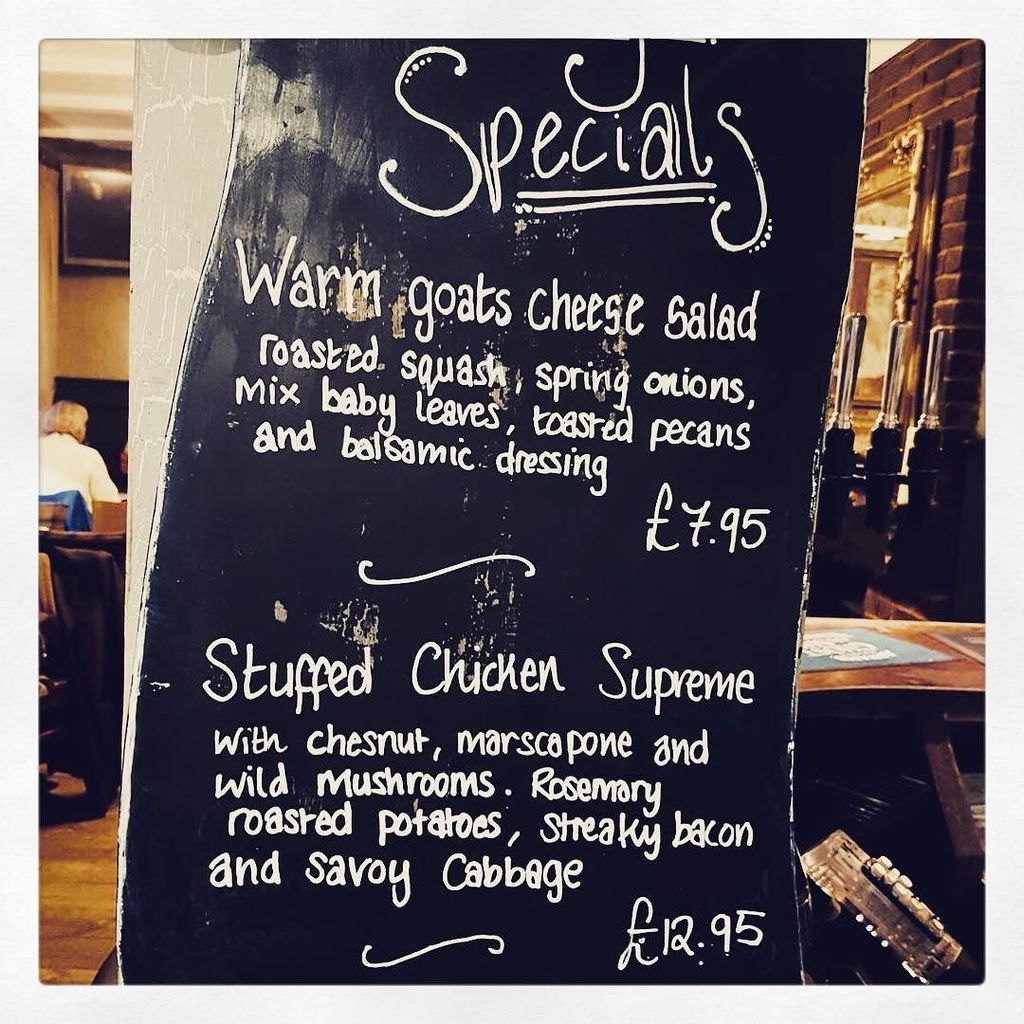 Specials
Warm goats cheese salad
roasted squash, spring onions,
mix baby leaves, toasted pecans
and balsamic dressing
£7.95
Stuffed Chicken Supreme
with chesnut, marscapone and
wild mushrooms. Rosemary
roasted potatoes, streaky bacon
and savoy cabbage
£12.95